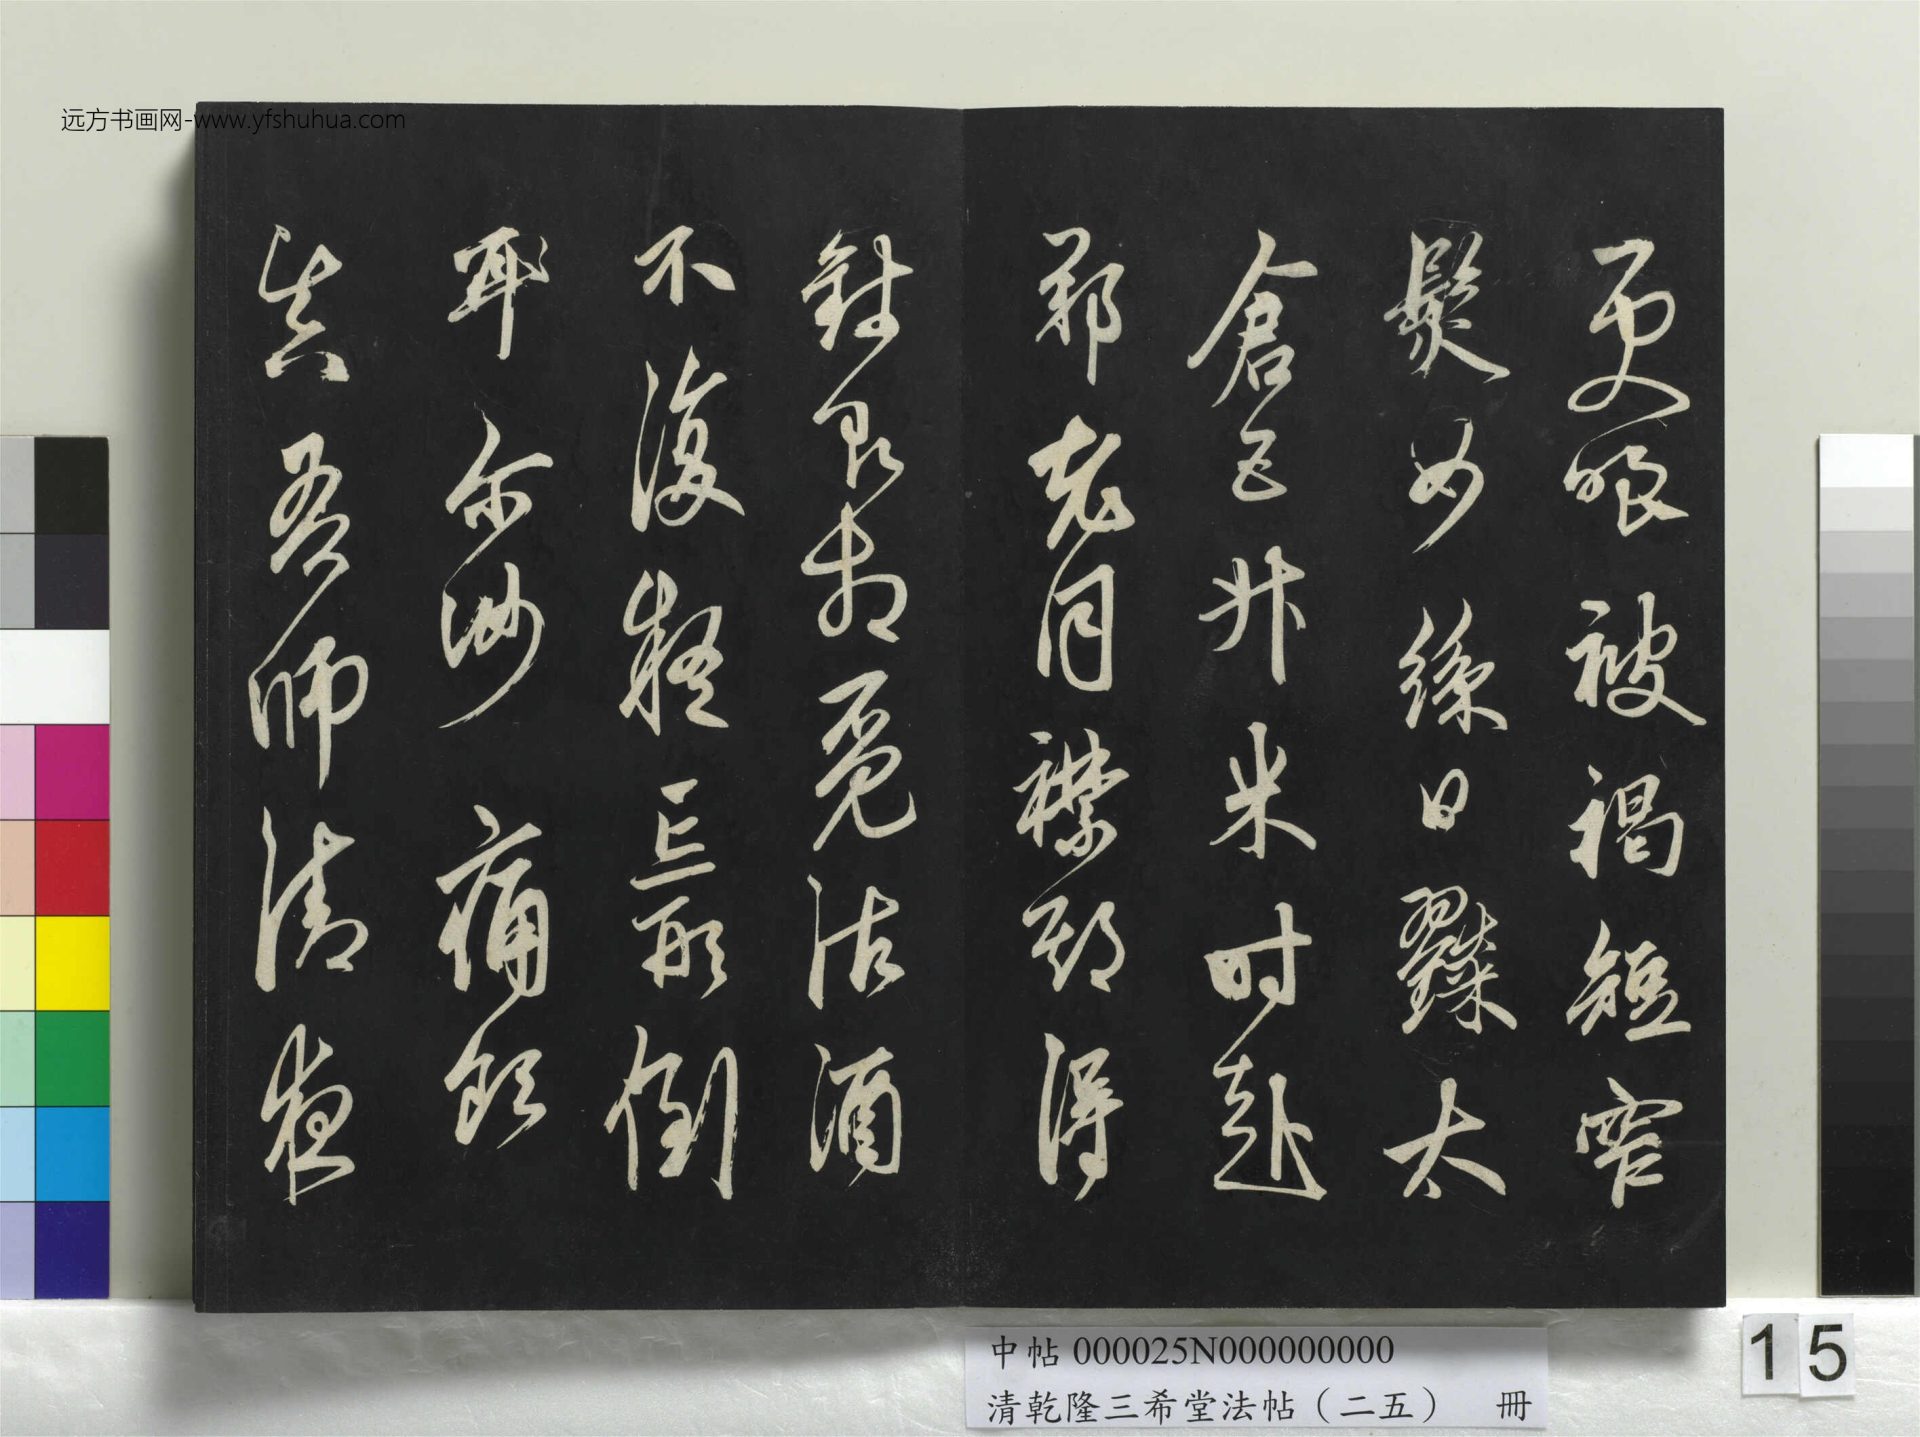 远方书画网-www.yfshuhua.com
更嗤被褐短窄
鬢如絲日糴太
倉五升米时赴
鄭老同襟期得
錢即相覓沽酒
不復疑忘形倒
耳尔汝痛飲
真吾師清夜
中帖 000025N000000000
清乾隆三希堂法帖（二五） 冊
15